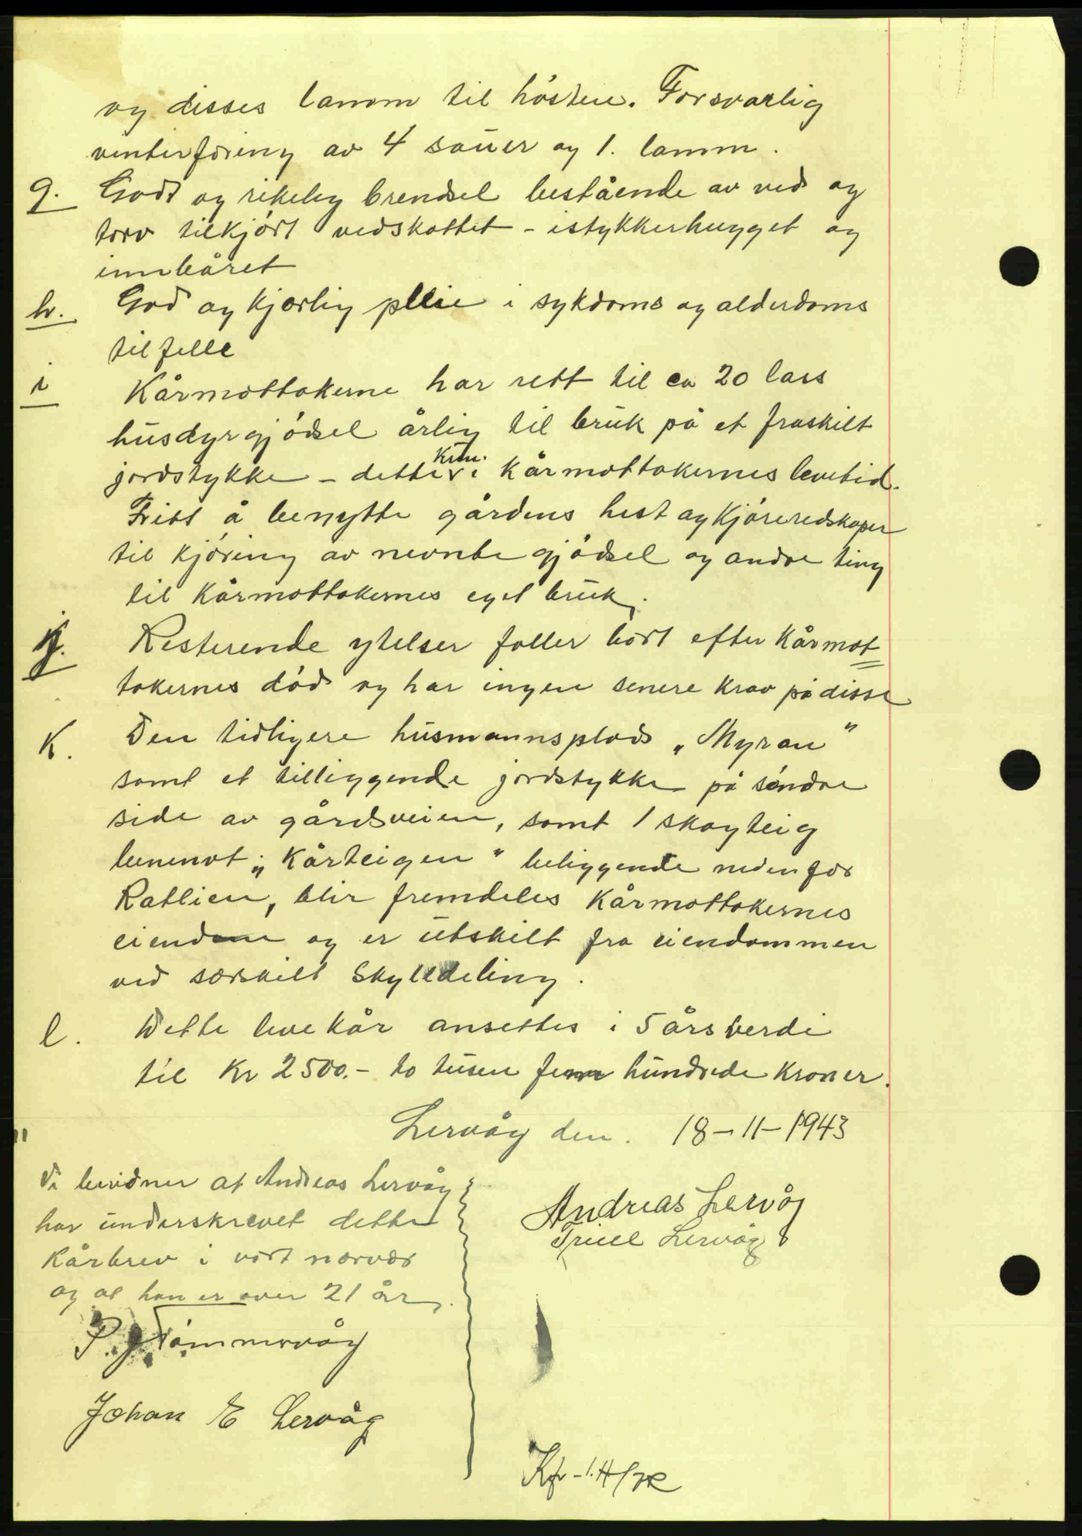 og disses lamm til hösten. Forsvarlig
vinterforing av 4 sauer og 1. lamm.
g. Godt og rikelig brendsel bestående av ved og
torv tilkjört vedskottet - istykkerhugget og
innbåret
h. God og kjærlig pleie i sykdoms og alderdoms
tilfelle
i Kårmottakerne har rett til ca 20 lass
husdyrgjödsel årlig til bruk på et fraskilt
jordstykke - dette kun i Kårmottakernes levetid.
Fritt å benytte gårdens hest og kjöreredskaper
til kjöring av nevnte gjödsel og andre ting
til Kårmottakernes eget bruk.
j. Resterende ytelser faller bort efter Kårmot
takernes död og har ingen senere krav på disse
K. Den tidligere husmannsplads „Myran"
samt et tilliggende jordstykke på söndre
side av gårdsveien, samt 1 skogteig
benevnt „Kårteigen" beliggende nedenfor
Ratlien, blir fremdeles Kårmottakernes
eiendom og er utskilt fra eiendommen
ved særskilt Skylddeling.
l. Dette levekår ansettes i 5 års verdi
til Kr 2500.- to tusen fem hundrede Kroner.
Lervåg den. 18-11-1943
Vi bevidner at Andreas Lervåg
har underskrevet dette
Kårbrev i vort nærvær
og at han er over 21 år.
Andreas Lervåg
Lervåg
P. J. Tömmervåg
Johan E Lervåg